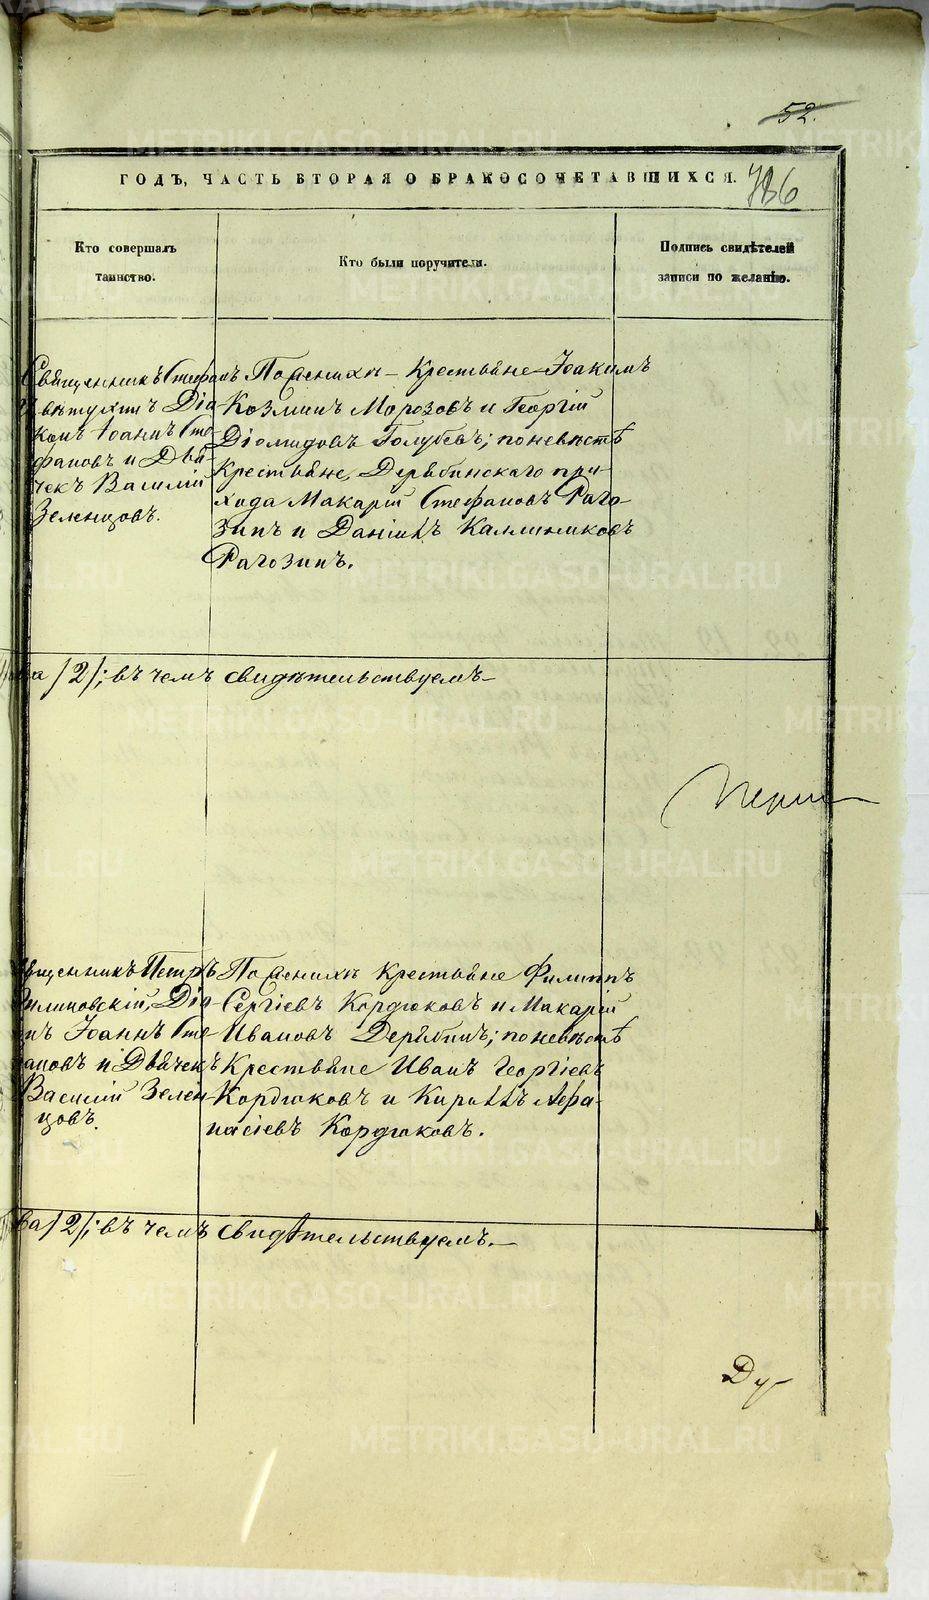 52.
ГОДЪ, ЧАСТЬ ВТОРАЯ О БРАКОСОЧЕТАВШИХСЯ.
786
Кто совершалъ
таинство.
Кто были поручители.
Подпись свидѣтелей
записи по желанію.
Священникъ Стефанъ
Діа
конъ Іоаннъ Сте
фановъ и Дья
чекъ Василій
Зеленцовъ.
По женихѣ – Крестьяне Іоакимъ
Козминъ Морозовъ и Георгій
Діомидовъ Голубевъ; по невѣстѣ
Крестьяне, Дерябинскаго при-
хода Макарій Стефановъ Раго-
зинъ и Даніилъ Каллиниковъ
Рагозинъ.
ва /2/; въ чемъ свидѣтельствуемъ –
вященникъ Петръ
Діа
нъ Іоаннъ Сте
ановъ и Дьячекъ
Василій Зелен-
цовъ.
По женихѣ Крестьяне Филиппъ
Сергіевъ Кордюковъ и Макарій
Ивановъ Дерябинъ; по невѣстѣ
Крестьяне Иванъ Георгіевъ
Кордюковъ и Кириллъ Афа-
насіевъ Кордюковъ.
ва /2/; въ чемъ свидѣтельствуемъ. –
Ду
METRIKI.GASO-URAL.RU